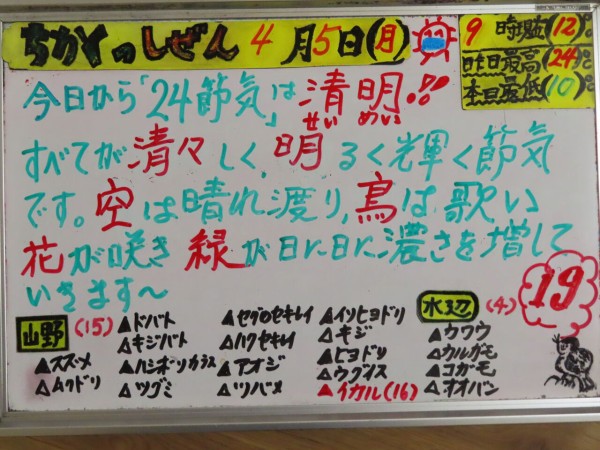 ちかくのしぜん 4月5日(月)
9時現在(12)℃
昨日最高(24)℃
本日最低(10)℃
今日から「24節気」は清明!!
せい めい
すべてが清々しく、明るく輝く節気
です。空は晴れ渡り、鳥は歌い
花が咲き緑が日に日に濃さを増して
いきます〜
19
山野(15)
▲スズメ
▲ムクドリ
▲ドバト
▲キジバト
▲ハシボソガラス
▲ツグミ
▲セグロセキレイ
▲ハクセキレイ
▲アオジ
▲ツバメ
▲イソヒヨドリ
▲キジ
▲ヒヨドリ
▲ウグイス
▲イカル(16)
水辺(4)
▲カワウ
▲カルガモ
▲コガモ
▲オオバン